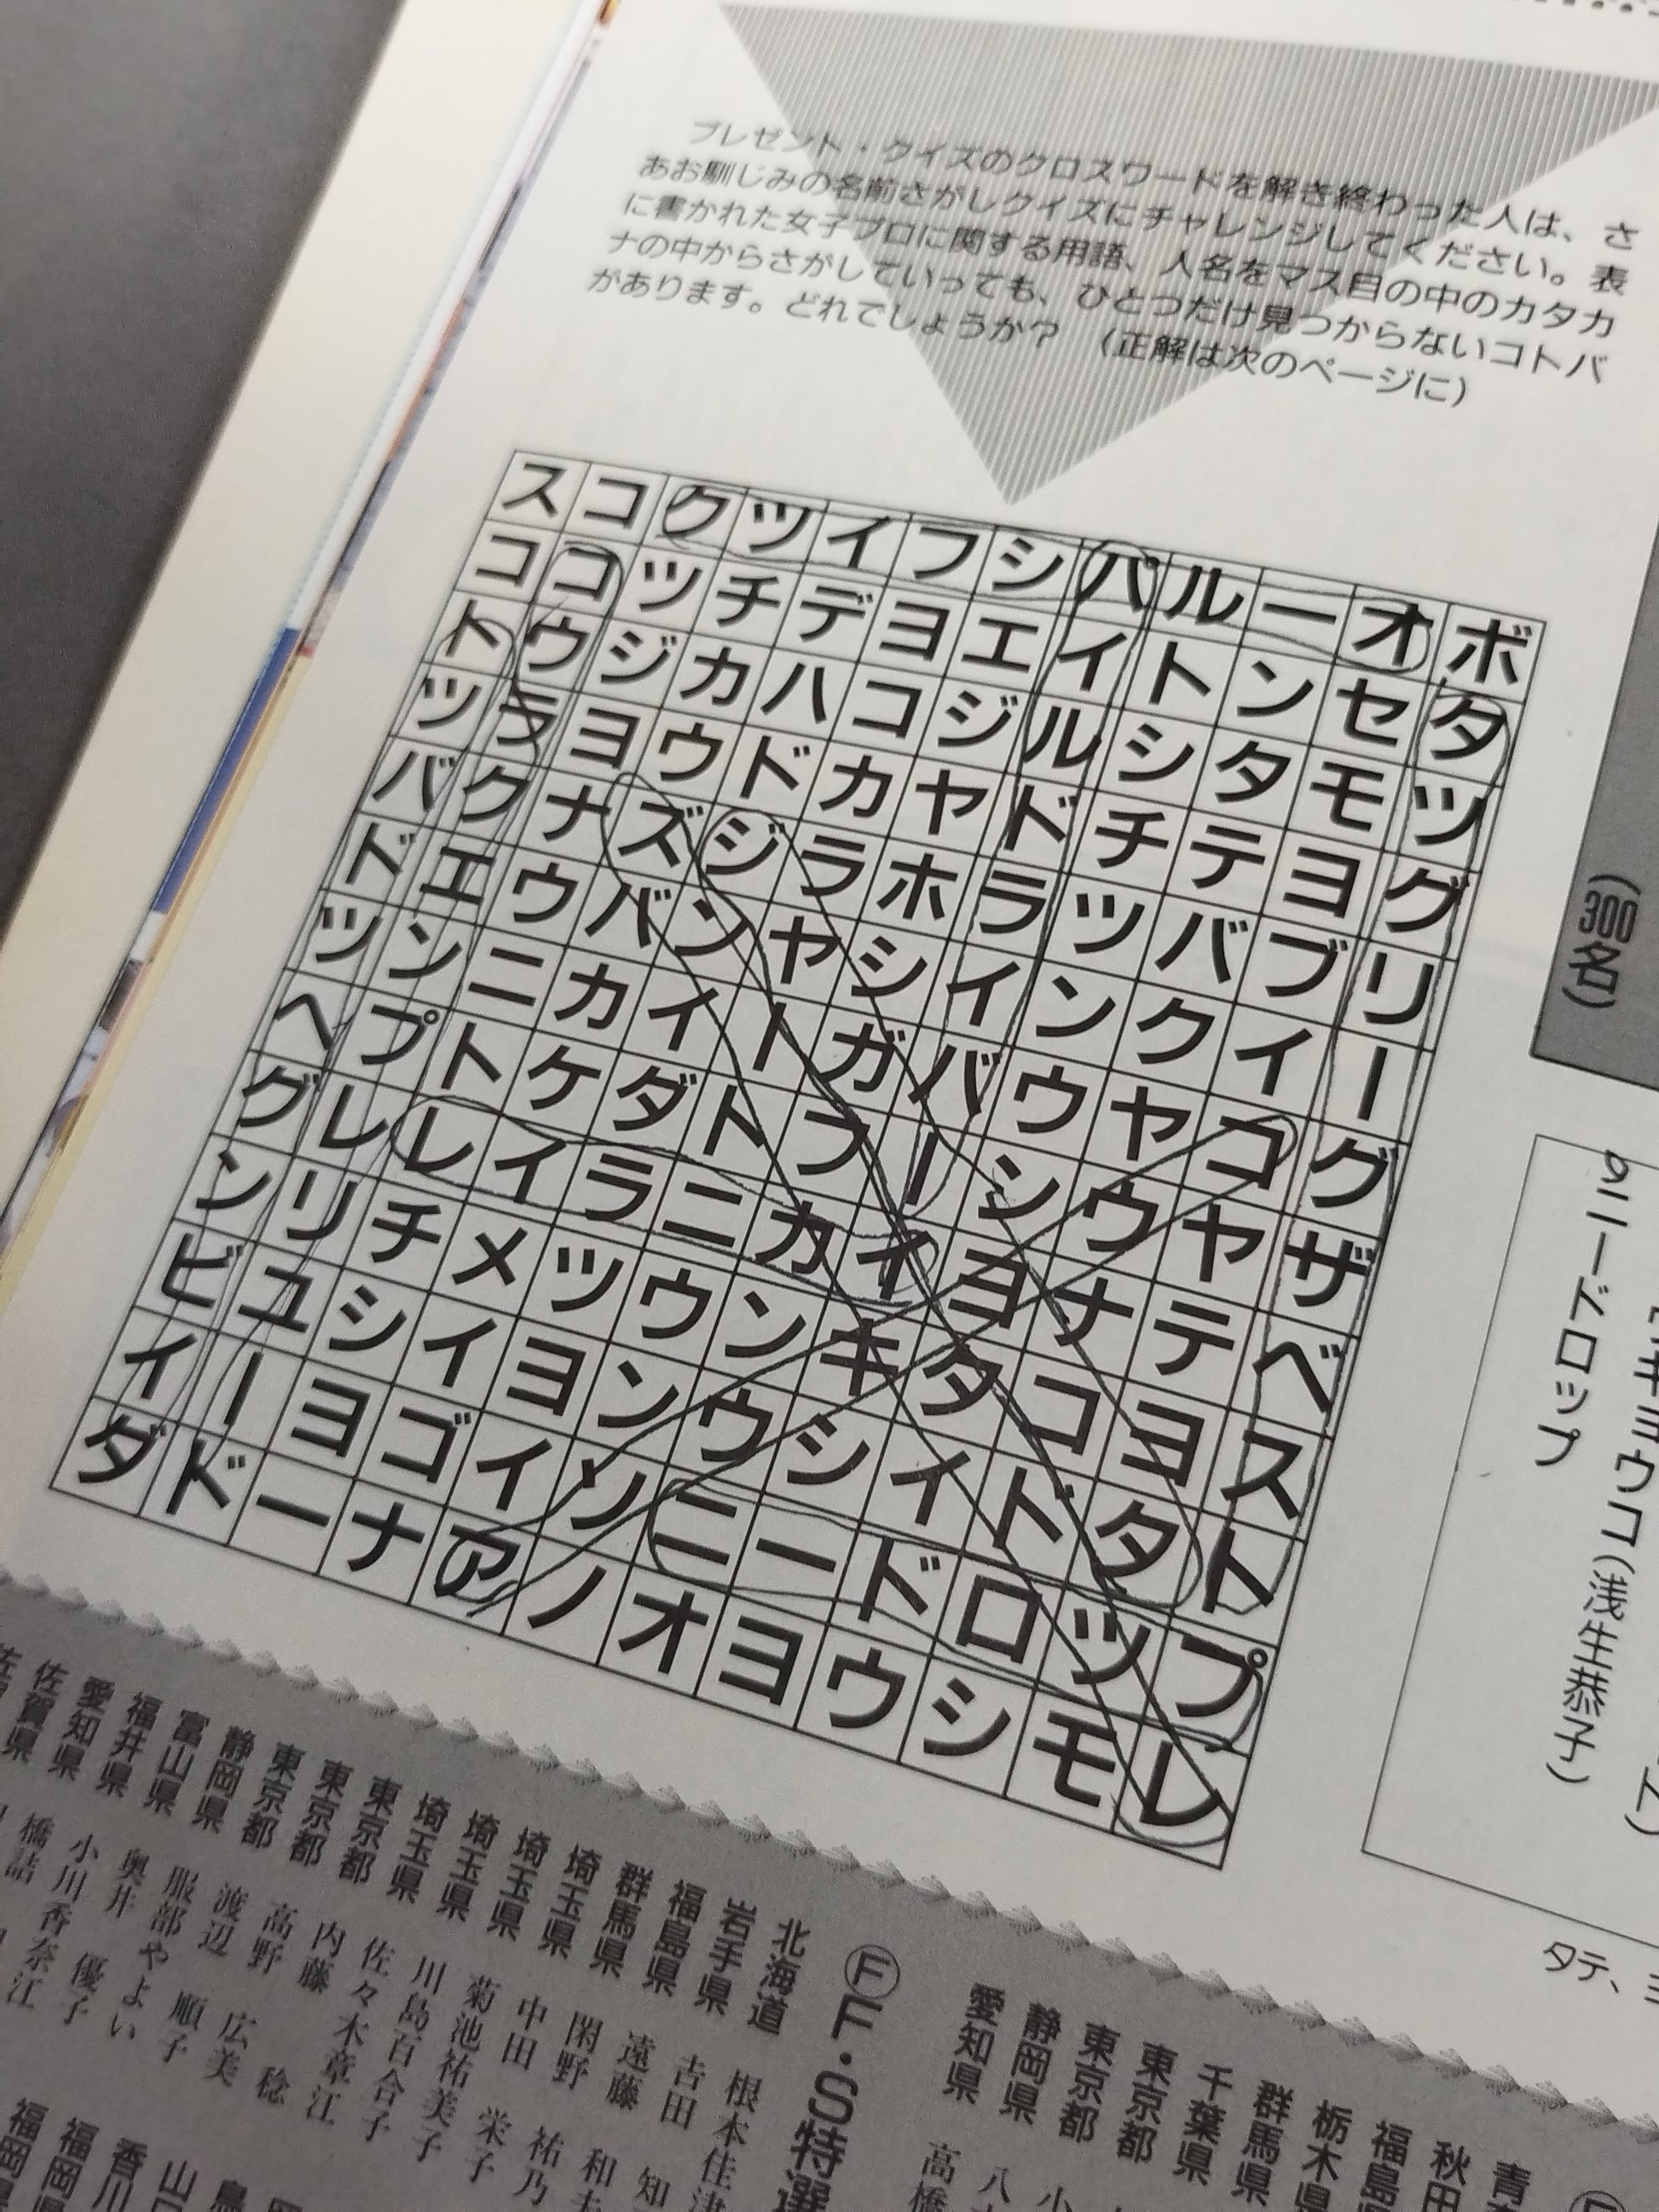 プレゼント・クイズのクロスワードを解き終わった人は、さ
あお馴じみの名前さがしクイズにチャレンジしてください。表
に書かれた女子プロに関する用語、人名をマス目の中のカタカ
ナの中からさがしていっても、ひとつだけ見つからないコトバ
があります。どれでしょうか？　(正解は次のページに)
スコクツイフシパルーオボ
ココツチデヨエイトンセタ
トウジカハコジルシタモツ
ツラヨウドカヤドチテヨグ
バクナズジラホラツバブリ
ドエウバンヤシインクイー
ツンニカイーガバウヤコグ
ヘプトケダトフーシウヤザ
グレレイラニカイヨナテベ
ンリチメツウンキタコヨス
ビユシイヨンウシイドタト
イーヨゴイソニードロツプ
ダドーナアノオヨウシモレ
(300名)
キョウコ(浅生恭子)
ニードロップ
タテ、ヨ
青
秋田
福島県
栃木県
群馬県
千葉県
東京都
東京都
静岡県
愛知県　高橋
Ⓕ F・S特選
北海道　根本佳津
岩手県　吉田　知
福島県　遠藤　和
群馬県　閑野　祐乃
埼玉県　中田　栄子
埼玉県　菊池祐美子
埼玉県　川島百合子
埼玉県　佐々木章江
東京都　内藤　稔
東京都　高野　広美
東京都　渡辺　順子
静岡県　服部やよい
富山県　奥井　優子
福井県　小川香奈江
愛知県　橋詰
佐賀県